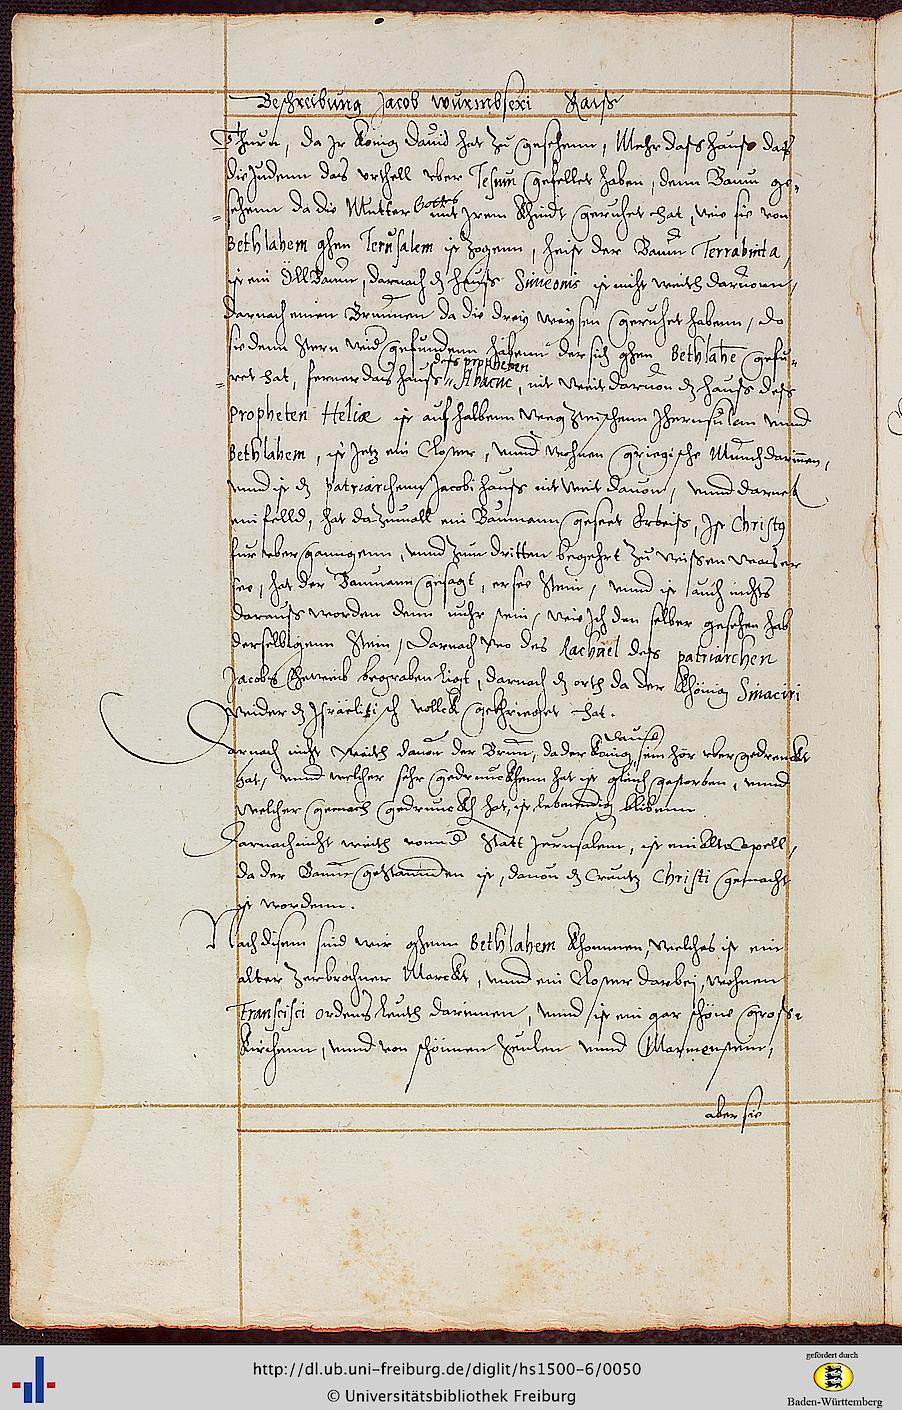 Beschreibung Jacob wurmbseri Raiß
Thurn, da Jr König dauid hat zu gesehenn, Mehr das hauß daß
die Judenn das vrthell vber Jesum gefellet haben, denn Baum ge=
sehenn da die Mutter Gottes mit Jrem Khindt geruhet hat, wie sie von
Bethlahem ghen Jerusalem ist zogenn, heist der Baum Terrabinta,
ist ein ÖllBaum, darnach dz hauß Simeonis ist nicht weith daruonn,
darnach einen Brunnen da die drey weysen geruhet habenn, do
sie denn Stern wid gefundenn habenn der sich ghen Bethlahe gefu=
ret hat, ferner das hauß deß propheten Abacuc, nit weit daruon dz hauß deß
Propheten Heliæ ist auf halbenn weg zwischenn Jherusalem vnnd
Bethlahem, ist Jetz ein Closter, vnnd wohnen griegische Münch darinnen,
vnnd ist dz patriarchenn Jacobi hauß nit weit dauon, vnnd darnebe
ein felld, hat dazumall ein Baumann geseet Erbeiß, Jst Christus
fur vber ganngenn, vnnd zum dritten begehrt zu wissen was er
see, hat der Baumann gesagt, er see Stein, vnnd ist auch nichts
darauß worden denn nuhr stein, wie Jch den selber gesehen hab
derselbigenn Stein, darnach wo des Rachael deß patriarchen
Jacobs Eheweib begraben ligt, darnach dz orth da der Khönig Sinaciri
wider dz Jsraelitisch vollck gekhrieget hat.
Darnach nicht weith dauon der Brunn, da der König sein hör vber gedrenckt
hat, vnnd welcher sehr gedrunckhenn hat ist gleich gestorben, vnnd
welcher gemach gedrunckh hat, ist lebendig blibenn
Darnach nicht weith vonn d Statt Jerusalem, ist ein alte Capell,
da der Baum gestannden ist, dauon dz Creutz Christi gemacht
ist wordenn.
Nach disem sind wir ghenn Bethlahem khommen, welches ist ein
alter zerbrochner Marckt, vnnd ein Closter darbei, wohnen
Franscisci ordens leuth darinnen, vnnd ist ein gar schöne grosse
Kirchenn, vnnd von schönnen Seulen vnnd Marmenstein,
aber sie
http://dl.ub.uni-freiburg.de/diglit/hs1500-6/0050
© Universitätsbibliothek Freiburg
gefördert durch
Baden-Württemberg